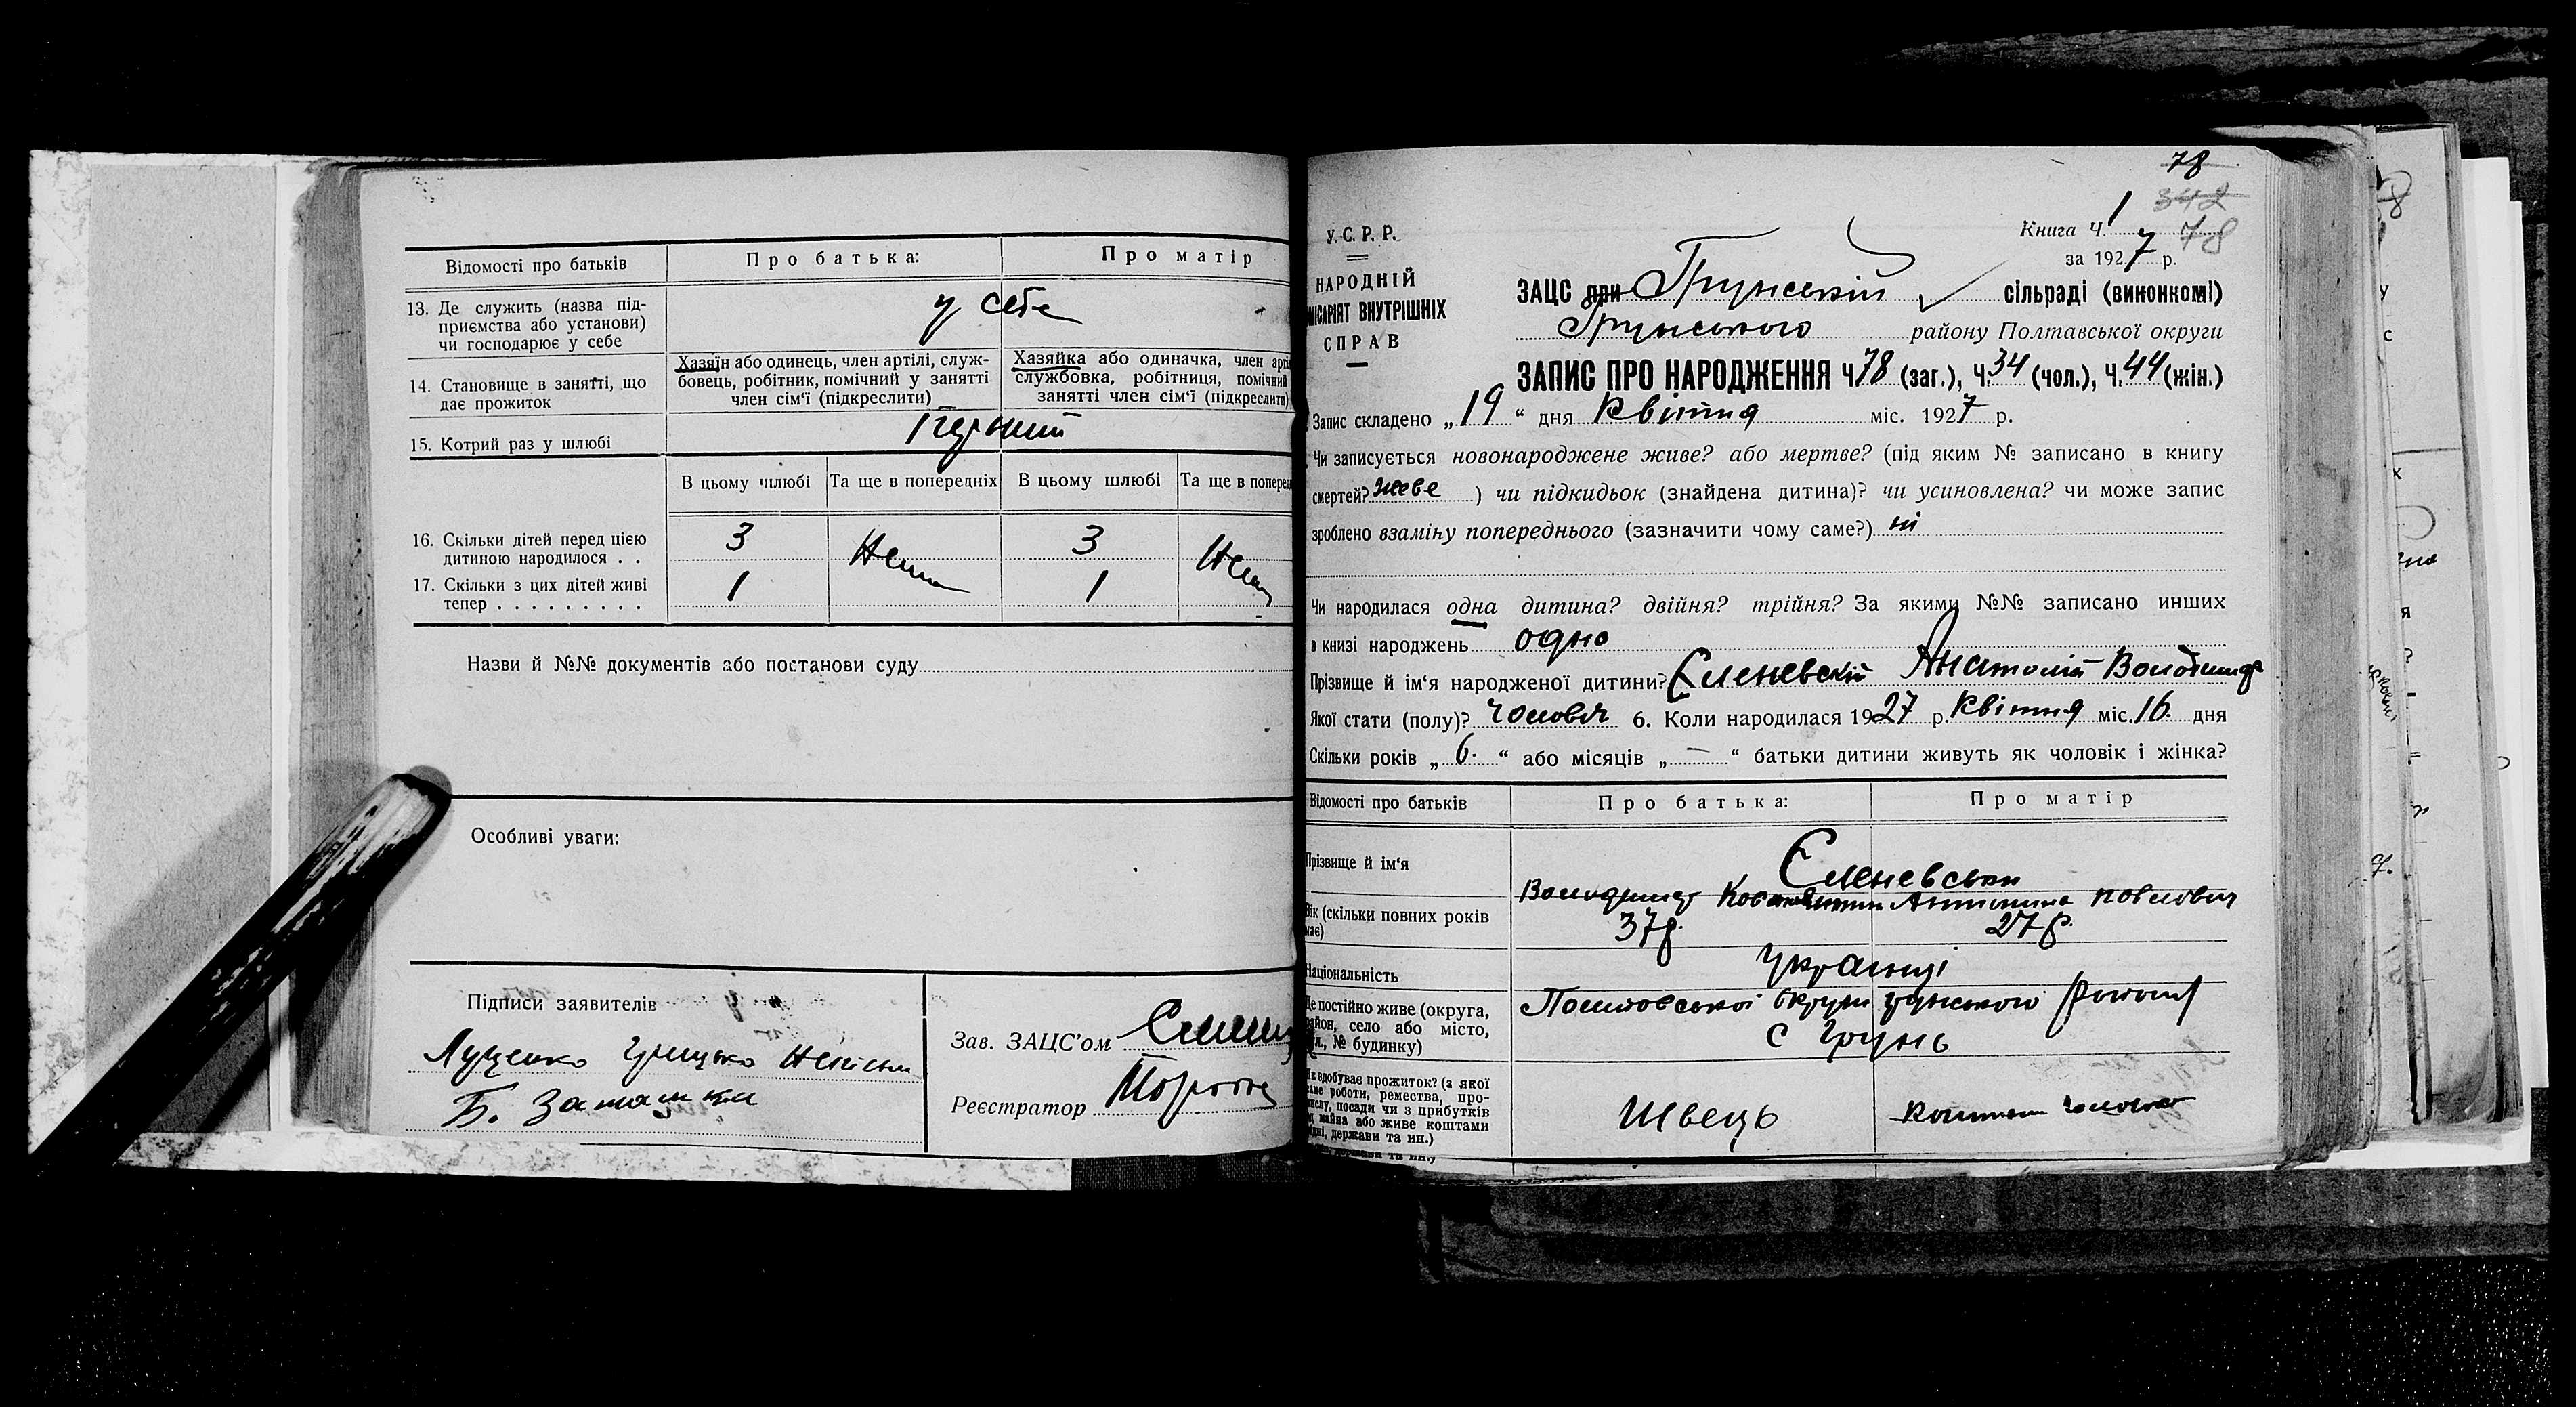 Відомості про батьків
Про батька:
Про матір
13. Де служить (назва під-
приємства або установи)
чи господарює у себе
у себе
14. Становище в занятті, що
дає прожиток
Хазяїн або одинець, член артілі, служ-
бовець, робітник, помічний у занятті
член сім'ї (підкреслити)
Хазяйка або одиначка, член арті
службовка, робітниця, помічний
занятті член сім'ї (підкреслити)
15. Котрий раз у шлюбі
Перший
В цьому шлюбі
Та ще в попередніх
В цьому шлюбі
Та ще в поперед
16. Скільки дітей перед цією
дитиною народилося . .
3
Нема
3
Нема
17. Скільки з цих дітей живі
тепер . . . . . . . . .
1
1
Назви й №№ документів або постанови суду
Особливі уваги:
Підписи заявителів
Луценко Грицько
Б. Заташки
Зав. ЗАЦС'ом
Реєстратор
78
342
78
Книга Ч. 1
за 1927 р.
У.С.Р.Р.
НАРОДНІЙ
МІСАРІЯТ ВНУТРІШНІХ
СПРАВ
ЗАЦС при Грунській сільраді (виконкомі)
Грунського району Полтавської округи
ЗАПИС ПРО НАРОДЖЕННЯ Ч. 78 (заг.), Ч. 34 (чол.), Ч. 44 (жін.)
Запис складено „19“ дня Квітня міс. 1927 р.
Чи записується новонароджене живе? або мертве? (під яким № записано в книгу
смертей? живе ) чи підкидьок (знайдена дитина)? чи усиновлена? чи може запис
зроблено взаміну попереднього (зазначити чому саме?) ні
Чи народилася одна дитина? двійня? трійня? За якими №№ записано инших
в книзі народжень одно
Прізвище й ім'я народженої дитини? Єленевскій Анатолій Володимир
Якої стати (полу)? чоловіч 6. Коли народилася 1927 р. Квітня міс. 16. дня
Скільки років „6.“ або місяців „—“ батьки дитини живуть як чоловік і жінка?
Відомості про батьків
Про батька:
Про матір
Прізвище й ім'я
Єленевськи
Володимир Антонина Повлович
Вік (скільки повних років
має)
37р.
27р.
Національність
Українці
Де постійно живе (округа,
район, село або місто,
вул., № будинку)
Полтовської округи грунського району
с Грунь
Як здобуває прожиток? (з якої
саме роботи, ремества, про-
мислу, посади чи з прибутків
від майна або живе коштами
рідні, держави та ин.)
Швець